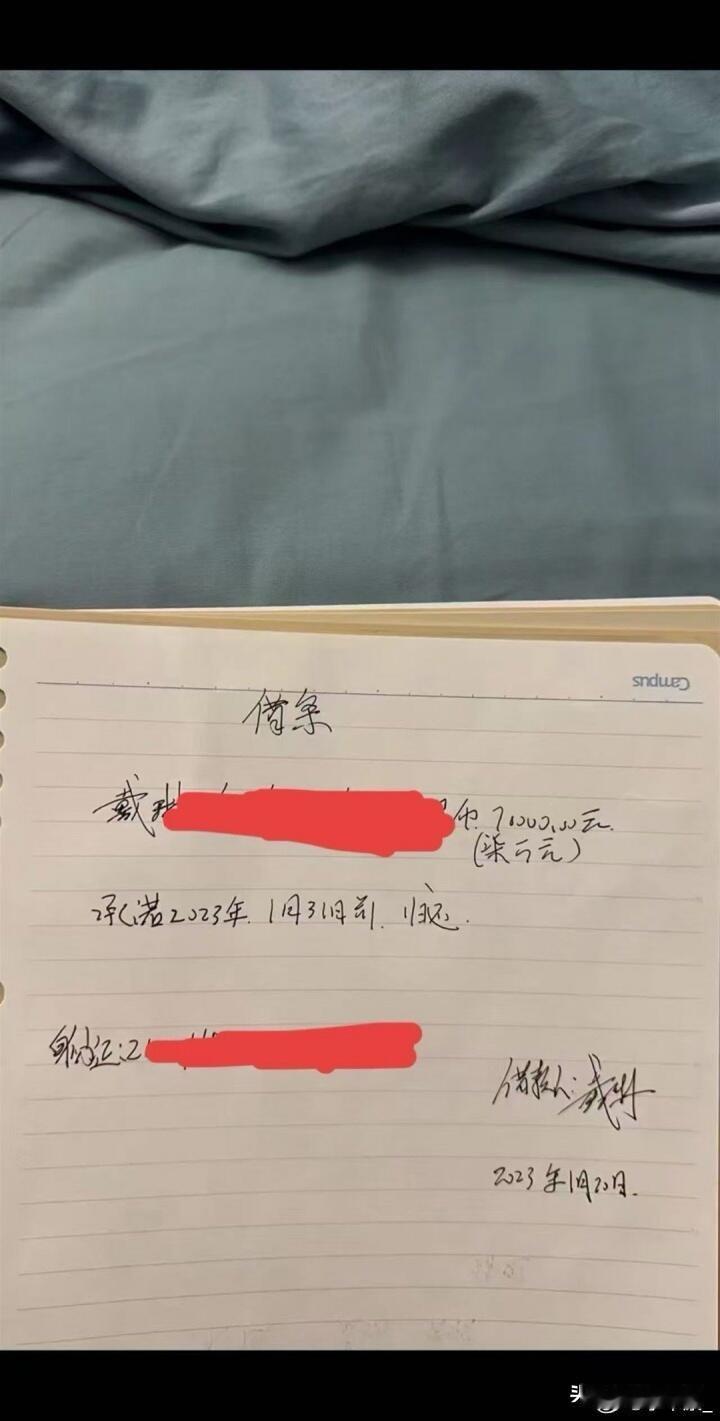 Campus
借条
戴琳 币 70000.00元.
(柒万元)
承诺2023年.1月31日前.归还.
身份证:2
借款人:戴琳
2023年1月20日.
头